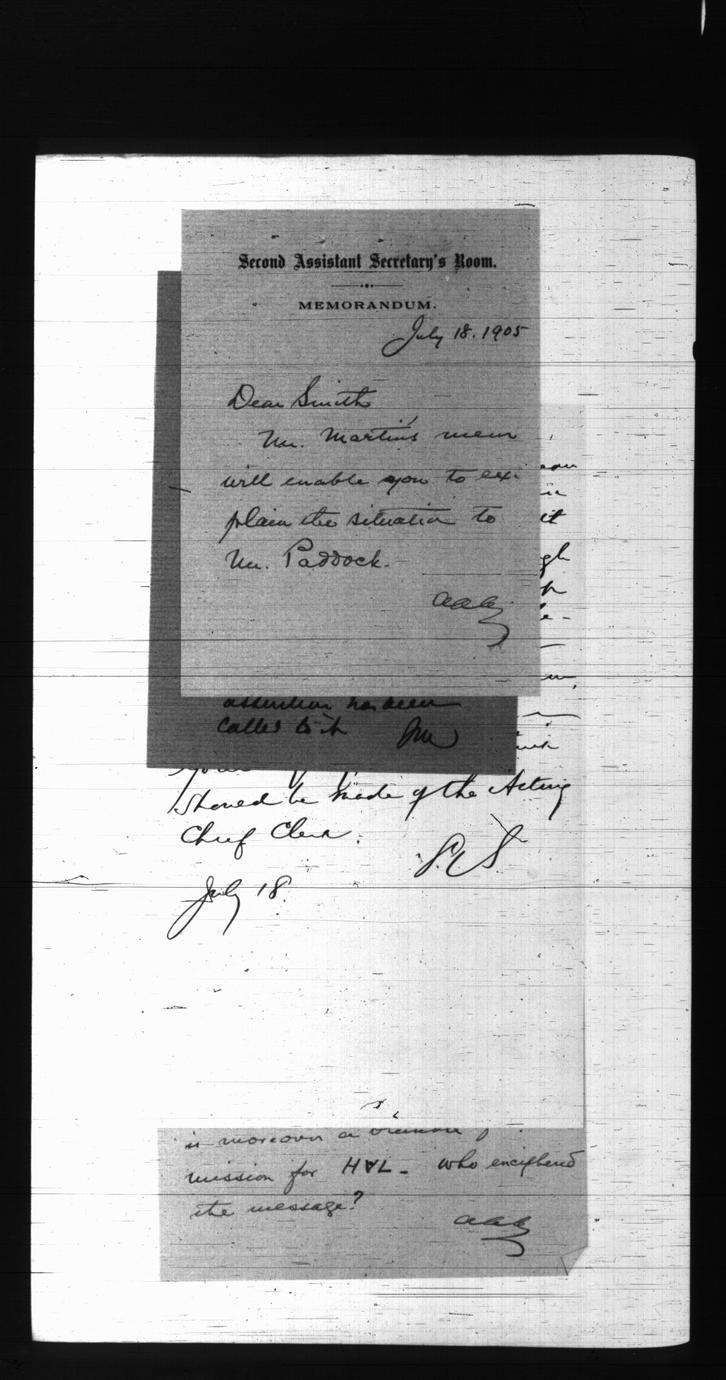 Second Assistant Secretary's Room.
MEMORANDUM.
July 18. 1905
Dear Smith
Mr. Martin's mem
will enable you to ex-
plain the situation to
Mr. Paddock.
aaa
it
attention has been
called to it
should be made of the Acting
Chief Clerk.
July 18.
is moreover a
mission for HVL - who enciphered
the message?
aaa